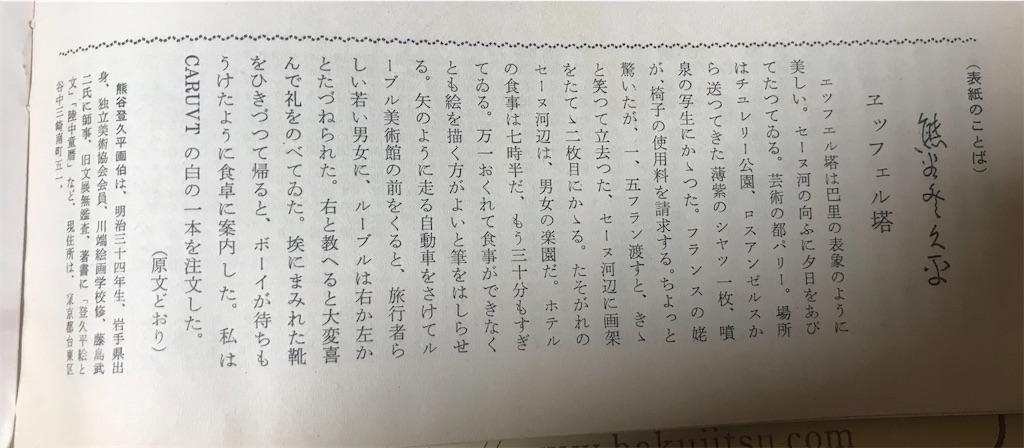 (表紙のことば)
熊谷登久平
エッフェル塔
エッフェル塔は巴里の表象のように
美しい。セーヌ河の向ふに夕日をあび
てたつてゐる。芸術の都パリー。場所
はチュレリー公園、ロスアンゼルスか
ら送つてきた薄紫のシャツ一枚、噴
泉の写生にかゝつた。フランスの姥
が、椅子の使用料を請求する。ちょっと
驚いたが、一、五フラン渡すと、きゝ
と笑つて立去つた、セーヌ河辺に画架
をたてゝ二枚目にかゝる。たそがれの
セーヌ河辺は、男女の楽園だ。ホテル
の食事は七時半だ、もう三十分もすぎ
てゐる。万一おくれて食事ができなく
とも絵を描く方がよいと筆をはしらせ
る。矢のように走る自動車をさけてル
ーブル美術館の前をくると、旅行者ら
しい若い男女に、ルーブルは右か左か
とたづねられた。右と教へると大変喜
んで礼をのべてゐた。埃にまみれた靴
をひきづつて帰ると、ボーイが待ちも
うけたように食卓に案内した。私は
CARUVT の白の一本を注文した。
(原文どおり)
熊谷登久平画伯は、明治三十四年生、岩手県出
身、独立美術協会会員、川端絵画学校修、藤島武
二氏に師事、旧文展無鑑査、著書に「登久平絵と
文」「陸中童暦」など、現住所は、東京都台東区
谷中三崎南町五二、
www.hakujitsu.com